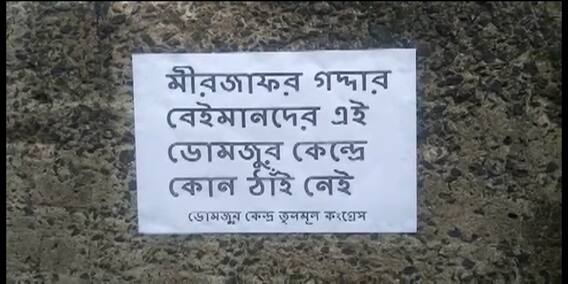 মীরজাফর গদ্দার
বেইমানদের এই
ডোমজুর কেন্দ্রে
কোন ঠাঁই নেই
ডোমজুর কেন্দ্র তৃনমূল কংগ্রেস